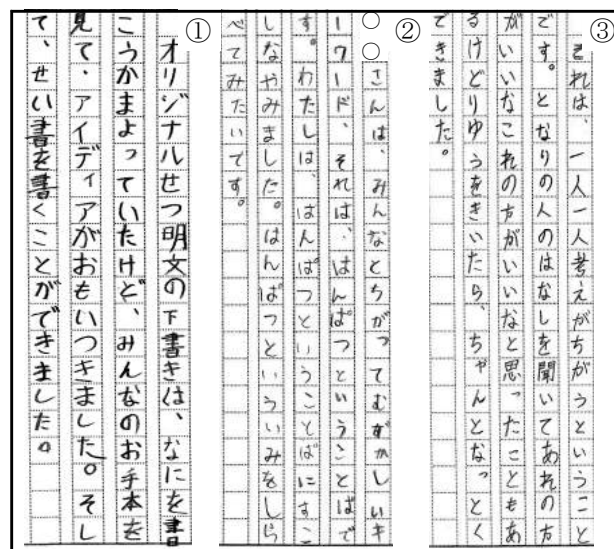 ①
オリジナルせつ明文の下書きは、なにを書
こうかまよっていたけど、みんなのお手本を
見て、アイディアがおもいつきました。そし
て、せい書を書くことができました。
②
○○さんは、みんなとちがってむずかしいキ
ーワード、それは、はんぱつということばで
す。わたしは、はんぱつということばにすこ
しなやみました。はんぱつといういみをしら
べてみたいです。
③
それは、一人一人考えがちがうということ
です。となりの人のはなしを聞いてあれの方
がいいなこれの方がいいなと思ったこともあ
るけどりゆうをきいたら、ちゃんとなっとく
できました。